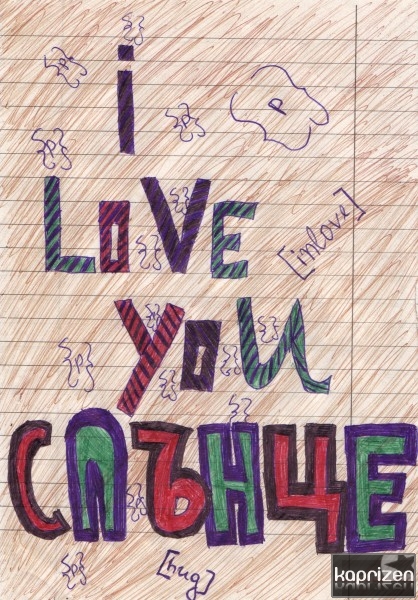 {p}
i
{p} {p} P
{p}
LOVE
{p} {p}
[inlove]
YOU
{p} {p} {p} {p}
{p}
СЛЪНЦЕ
{p}
{p} [hug]
kaprizen